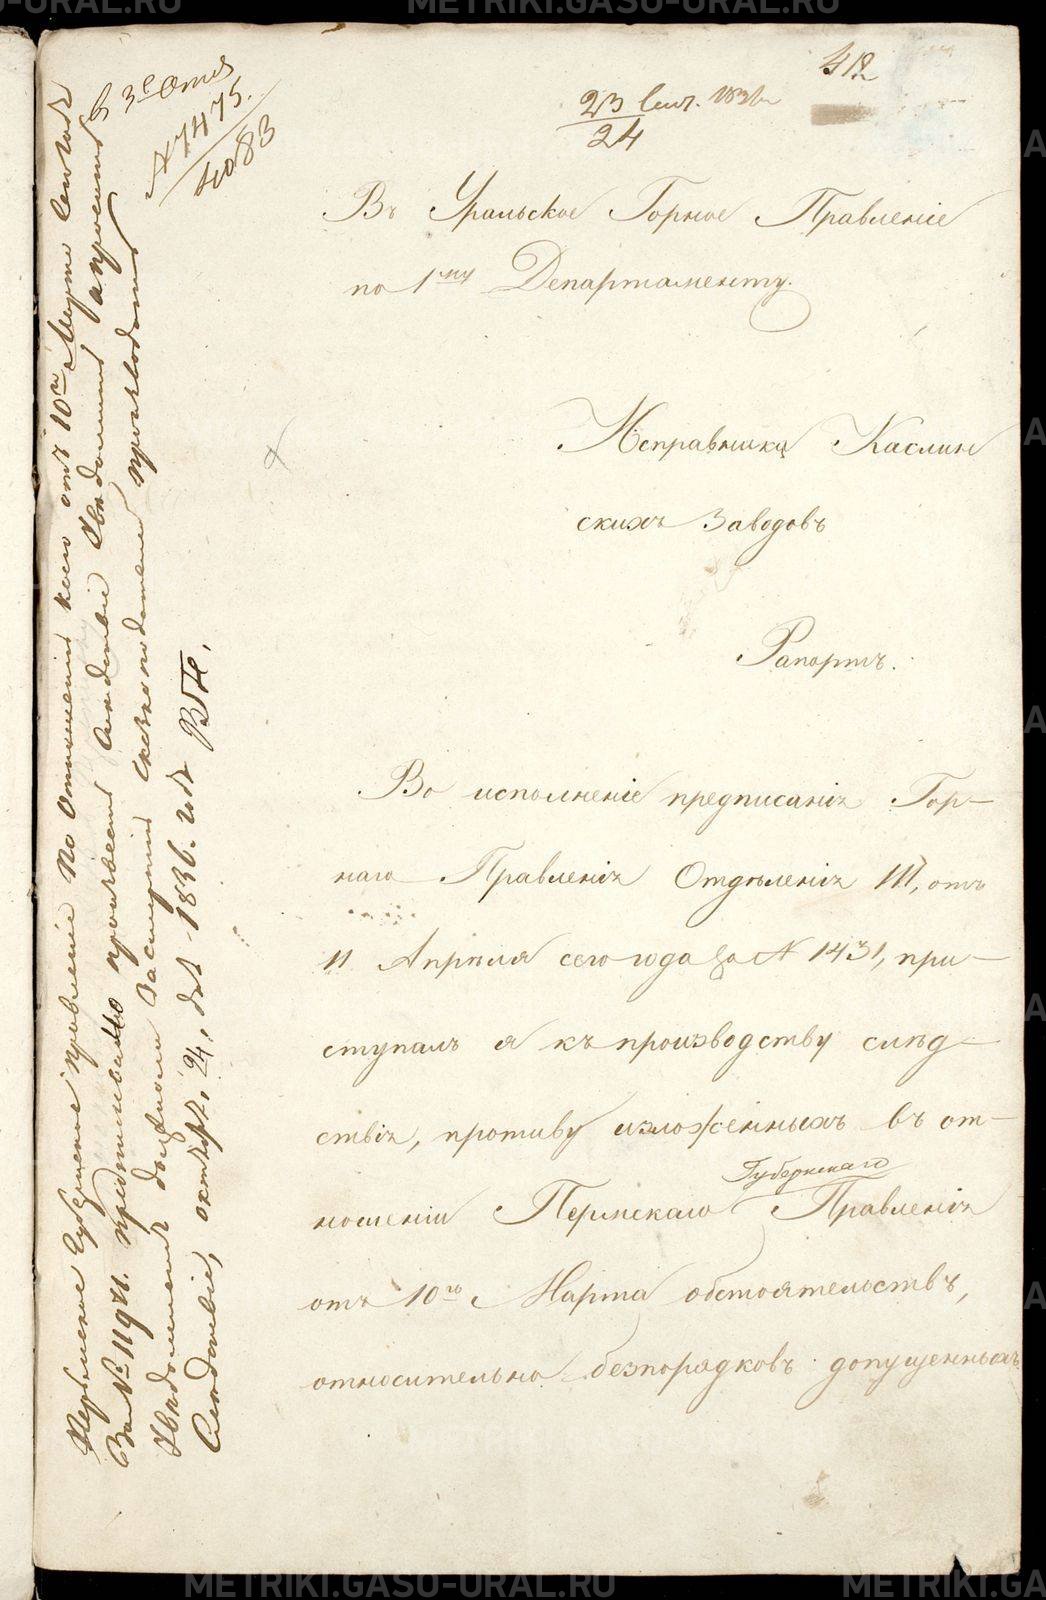 412
23 Сент. 1836
24
В 3е Отд
№ 7475.
4083
Въ Уральское Горное Правленіе
по 1му Департаменту.
Исправника Каслин
скихъ Заводовъ
Рапортъ.
Во исполненіе предписанія Гор-
наго Правленія Отдѣленія III, отъ
11 Апрѣля сего года за № 1431, при-
ступалъ я къ производству слѣд-
ствія, противу изложенныхъ въ от-
ношеніи Пермскаго Губернскаго Правленія
отъ 10го Марта обстоятельствъ,
относительно безпорядковъ допущенныхъ
Пермское Губернское правленіе по Отношенію коего отъ 10го Марта сего года
За № 11971. предписано произвесть слѣдствіе
Увѣдомленія
Слѣдствіе, октября, 24, дня 1836. года